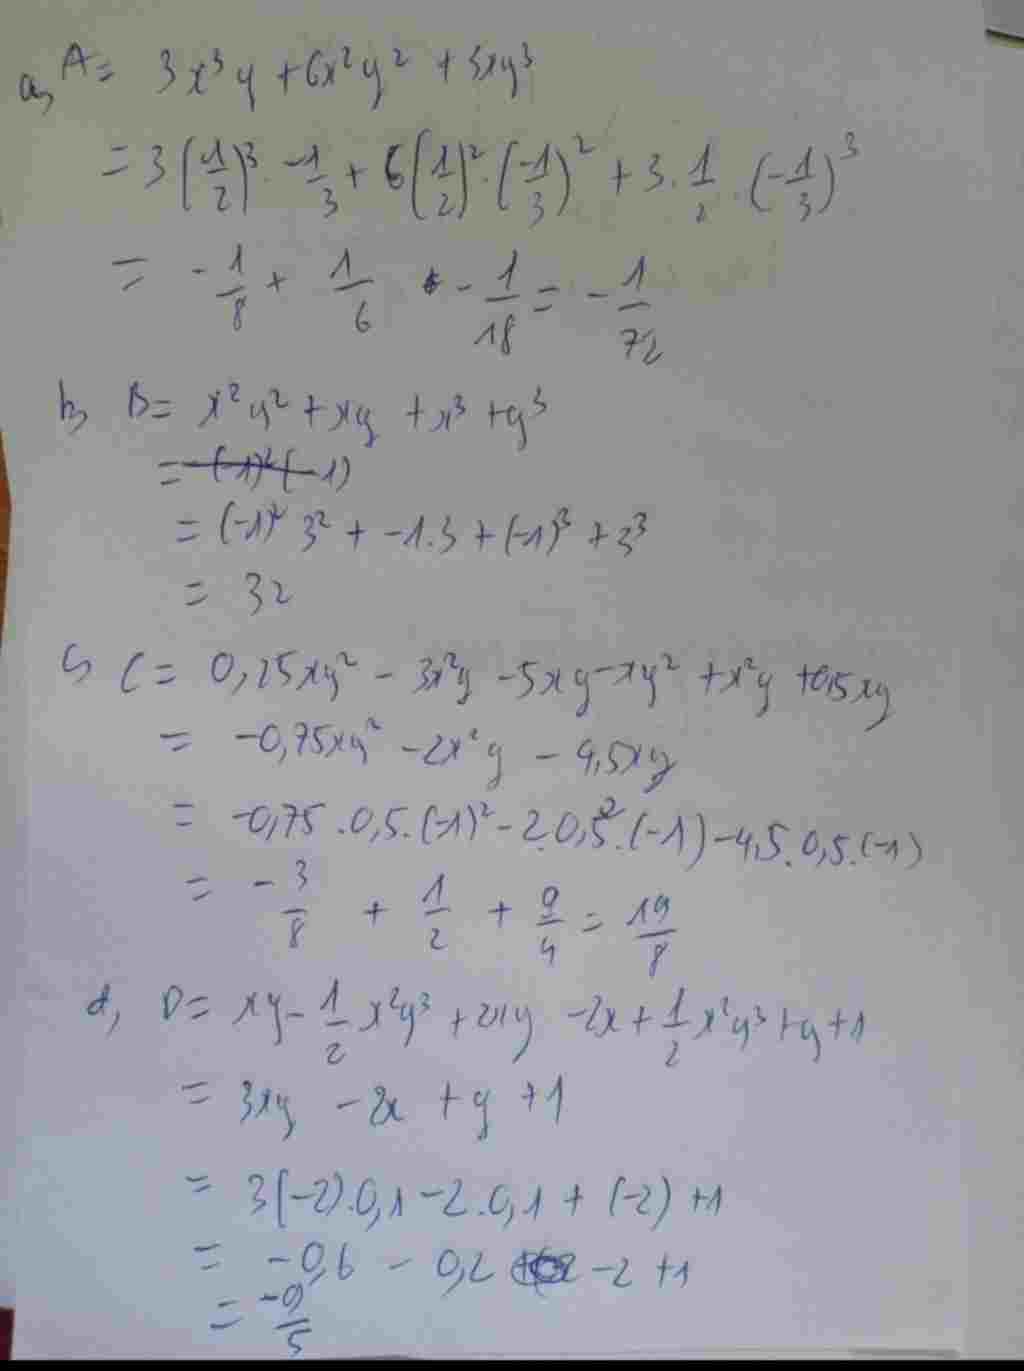 a, A = 3x³y + 6x²y² + 3xy³
= 3(1/2)³ . -1/3 + 6(1/2)² . (-1/3)² + 3 . 1/2 . (-1/3)³
= -1/8 + 1/6 - 1/18 = -1/72
b, B = x²y² + xy + x³ + y³
= (-1)²(-1)
= (-1)² 3² + -1.3 + (-1)³ + 3³
= 32
c, C = 0,25xy² - 3x²y - 5xy - xy² + x²y + 0,5xy
= -0,75xy² - 2x²y - 4,5xy
= -0,75 . 0,5 . (-1)² - 2 . 0,5² . (-1) - 4,5 . 0,5 . (-1)
= -3/8 + 1/2 + 9/4 = 19/8
d, D = xy - 1/2 x²y³ + 2xy - 2x + 1/2 x²y³ + y + 1
= 3xy - 2x + y + 1
= 3(-2) . 0,1 - 2 . 0,1 + (-2) + 1
= -0,6 - 0,2 - 2 + 1
= -9/5